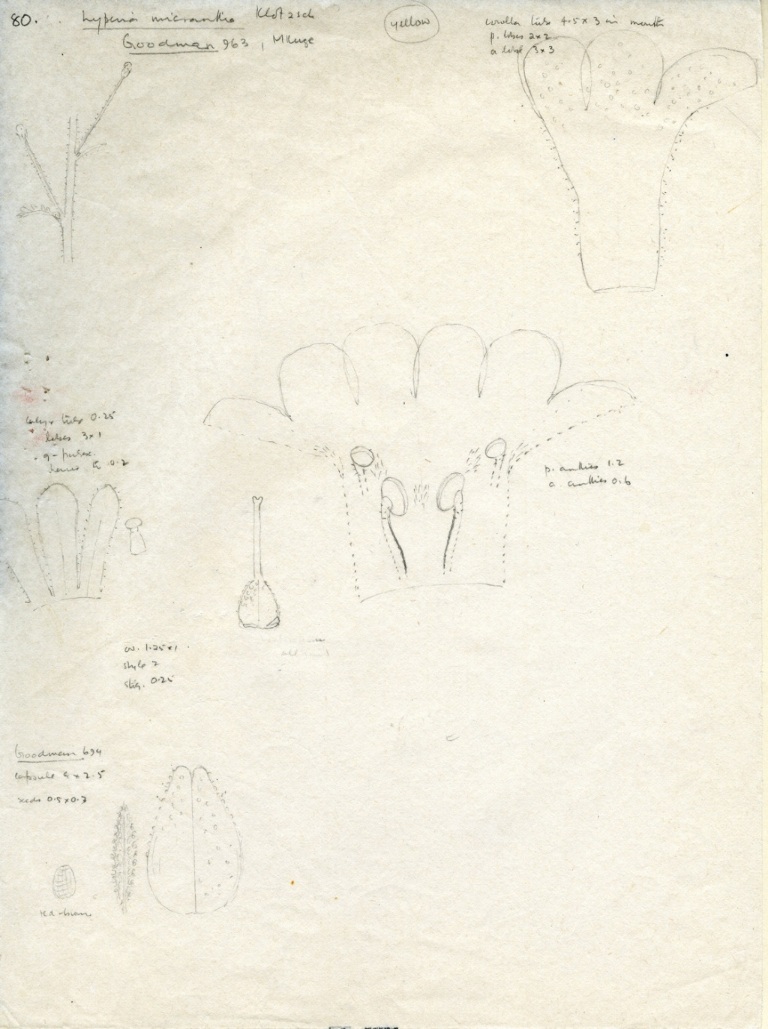 80. Lyperia micrantha Klotzsch
Goodman 963, Mkuze
yellow
corolla tube 4.5 x 3 in mouth
p. lobes 2x2
a. lobe 3x3
calyx tube 0.25
lobes 3x1
g-pubsc.
hairs to 0.2
p. anthers 1.2
a. anthers 0.6
ov. 1.25x1
style 2
stig. 0.25
Goodman 694
capsule 4 x 2.5
seeds 0.5x0.3